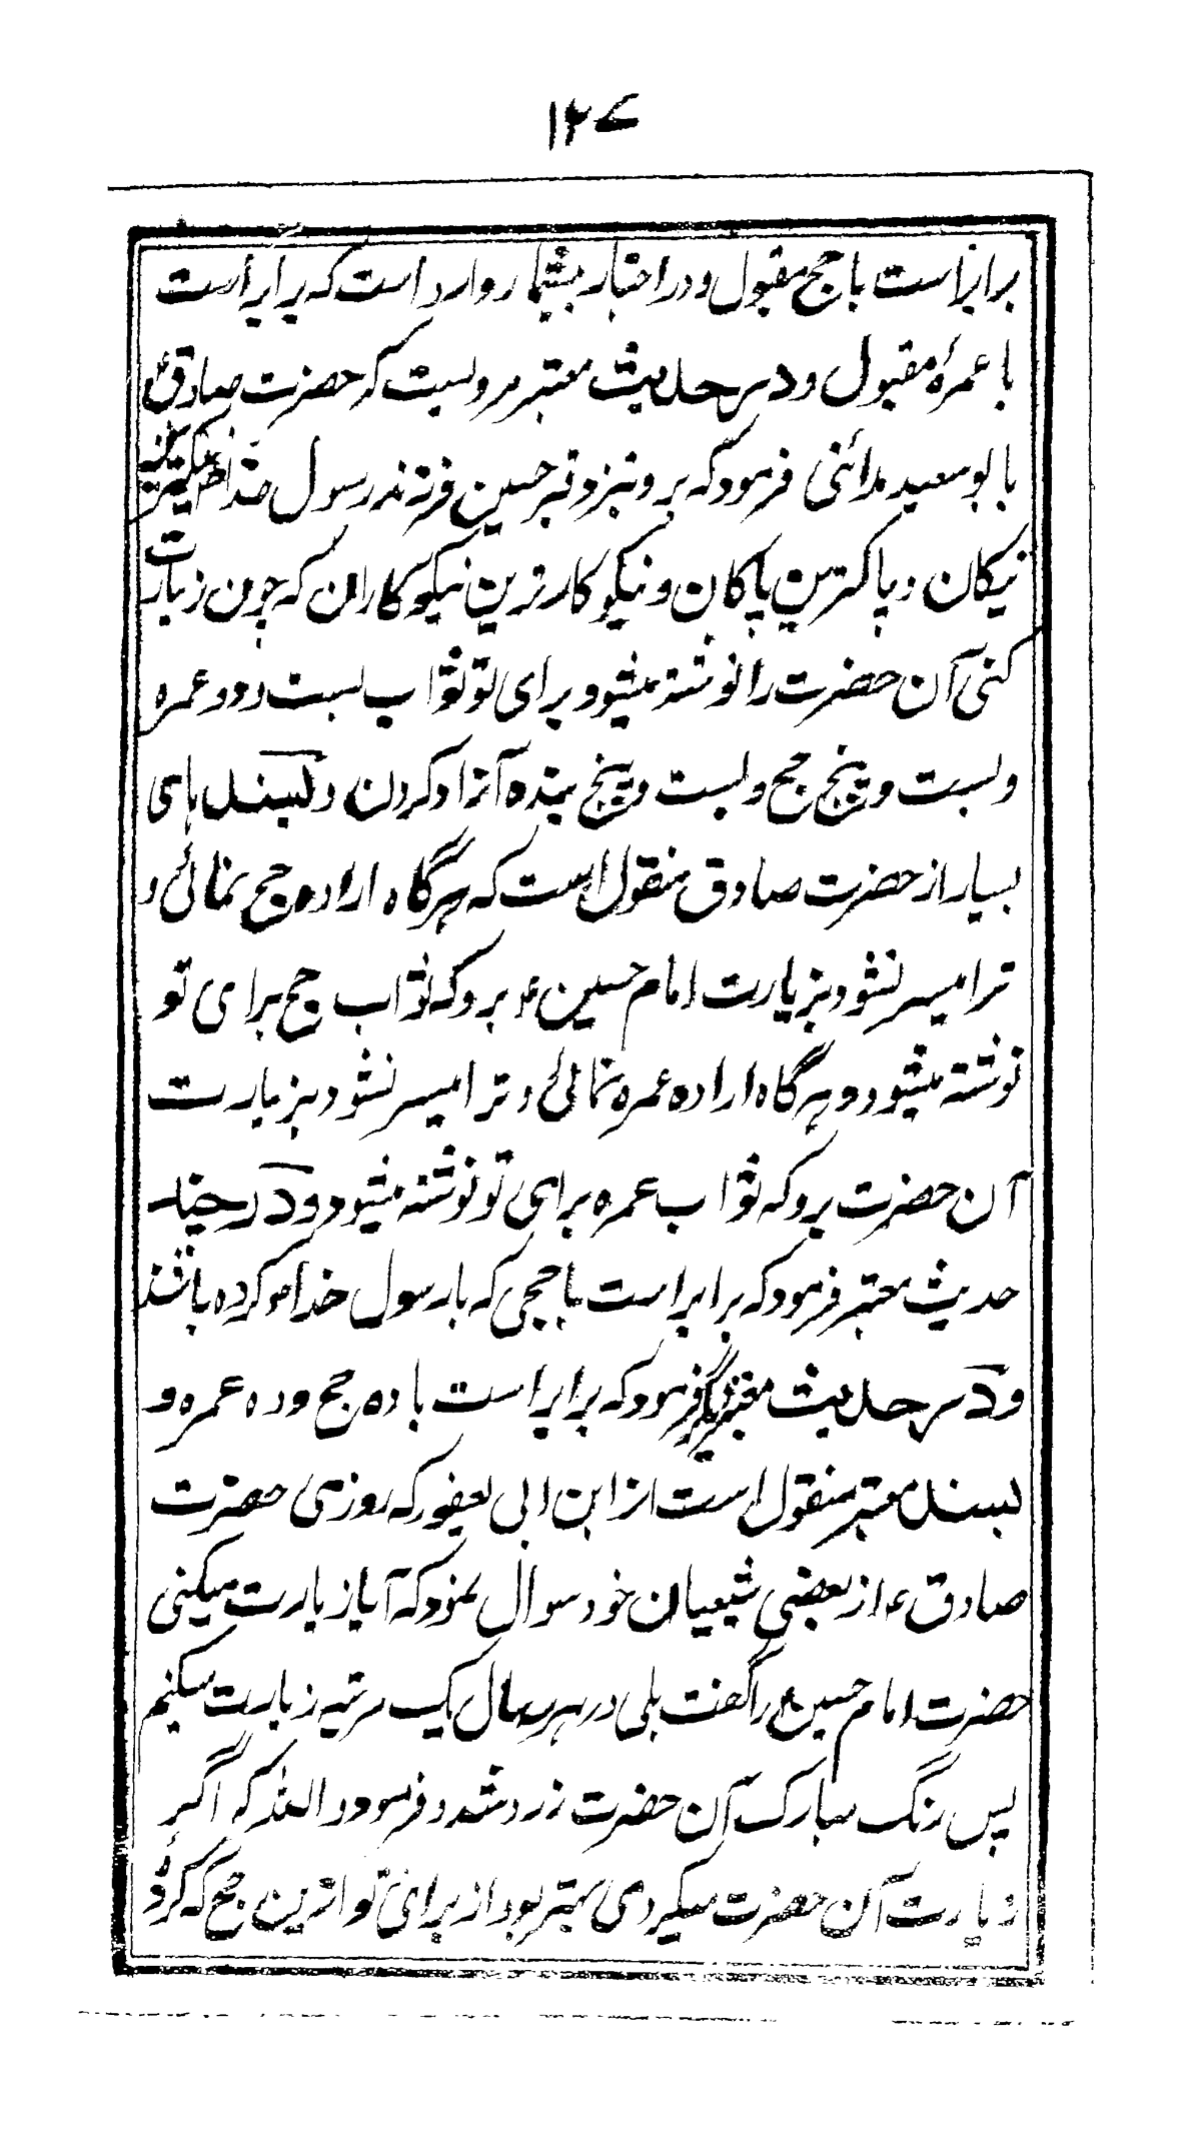 ۱۲۷
برابر است با حج مقبول و در اخبار بیشمار وارد است که برابر است
با عمرهٔ مقبول و در حدیث معتبر مرویست که حضرت صادق ع
با بوسعید مدائنی فرمود که برو بنزد قبر حسین فرزند رسول خدا
نیکان و پاکترین پاکان و نیکو کارترین نیکو کاران که چون زیارت
کنی آن حضرت را نوشته میشود برای تو ثواب بست و دو عمره
و بست و پنج حج و بست و پنج بنده آزاد کردن و بسند های
بسیار از حضرت صادق منقول است که هرگاه اراده حج نمائی و
ترا میسر نشود بزیارت امام حسین ع برو که ثواب حج برای تو
نوشته میشود و هرگاه اراده عمره نمائی و ترا میسر نشود بزیارت
آن حضرت برو که ثواب عمره برای تو نوشته میشود و در چند
حدیث معتبر فرمود که برابر است با حجی که با رسول خدا ص کرده باشند
و در حدیث معتبر دیگر فرمود که برابر است با ده حج و ده عمره و
بسند معتبر منقول است از ابن ابی یعفور که روزی حضرت
صادق ع از بعضی شیعیان خود سوال نمود که آیا زیارت میکنی
حضرت امام حسین ع را گفت بلی در هر سال یک مرتبه زیارت میکنم
پس رنگ مبارک آن حضرت زرد شد و فرمود و الله که اگر
زیارت آن حضرت میکردی بهتر بود از برای تو ازین حج که کردی